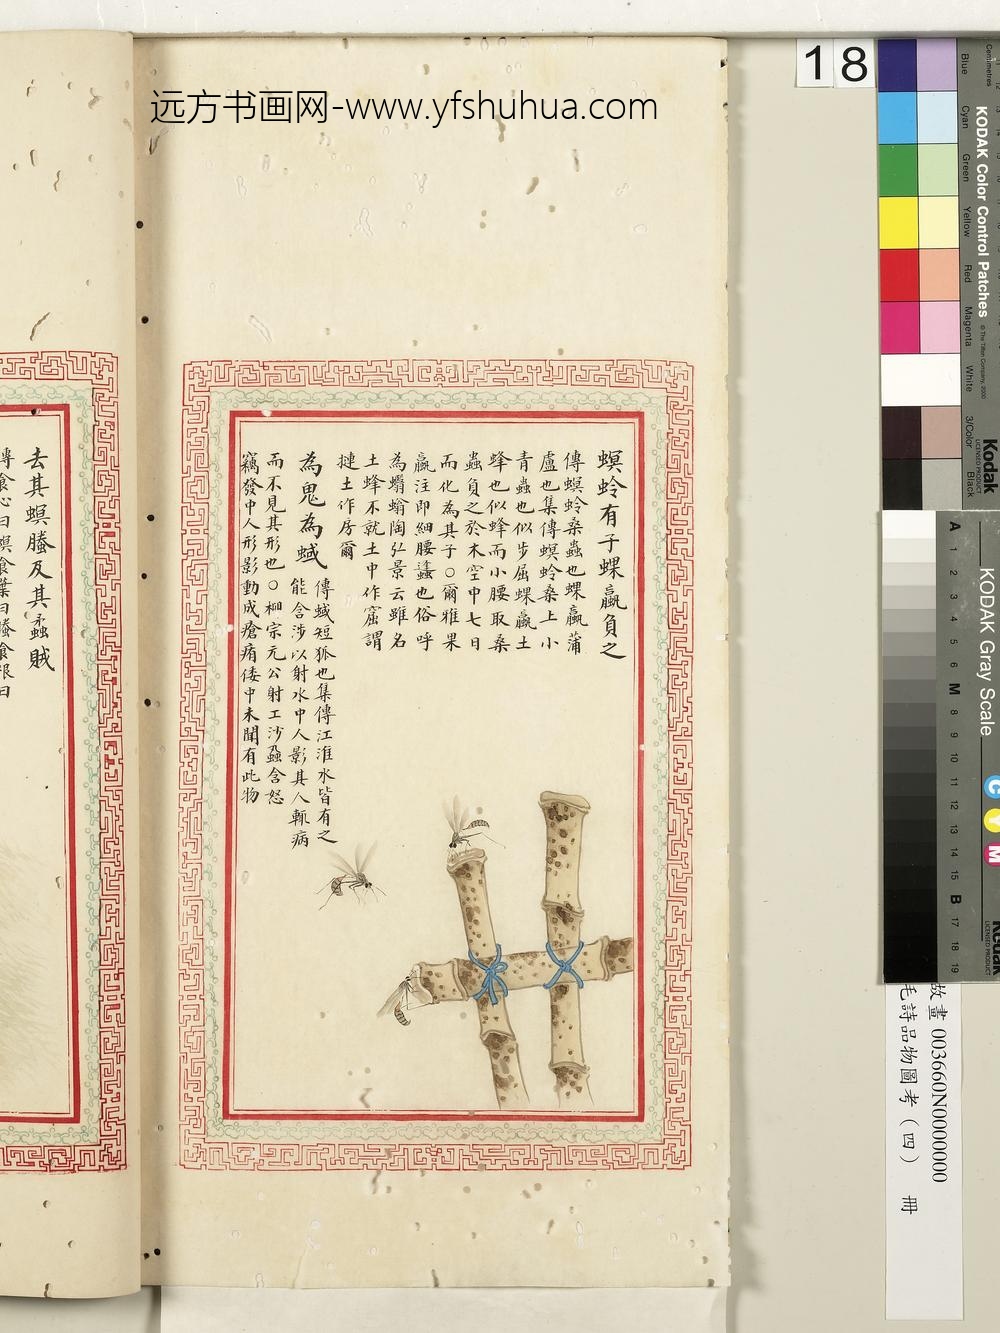 远方书画网-www.yfshuhua.com
18
螟蛉有子蜾蠃負之
傳螟蛉桑蟲也蜾蠃蒲
盧也集傳螟蛉桑上小
青蟲也似步屈蜾蠃土
蜂也似蜂而小腰取桑
蟲負之於木空中七日
而化為其子○爾雅果
蠃注即細腰蠭也俗呼
為蠮螉陶弘景云雖名
土蜂不就土中作窟謂
揵土作房爾
為鬼為蜮
傳蜮短狐也集傳江淮水皆有之
能含沙以射水中人影其人輒病
而不見其形也○柳宗元公射工沙蝨含怒
竊發中人形影動成瘡痏倭中未聞有此物
去其螟螣及其蟊賊
傳食心曰螟食葉曰螣食根曰
KODAK Color Control Patches
© The Tiffen Company, 2000
Kodak
LICENSED PRODUCT
Centimetres
Blue
Cyan
Green
Yellow
Red
Magenta
White
3/Color
Black
KODAK Gray Scale
A 1 2 3 4 5 6 M 8 9 10 11 12 13 14 15 B 17 18 19
C
Y
M
Kodak
LICENSED PRODUCT
故畫 003660N0000000
毛詩品物圖考（四） 冊